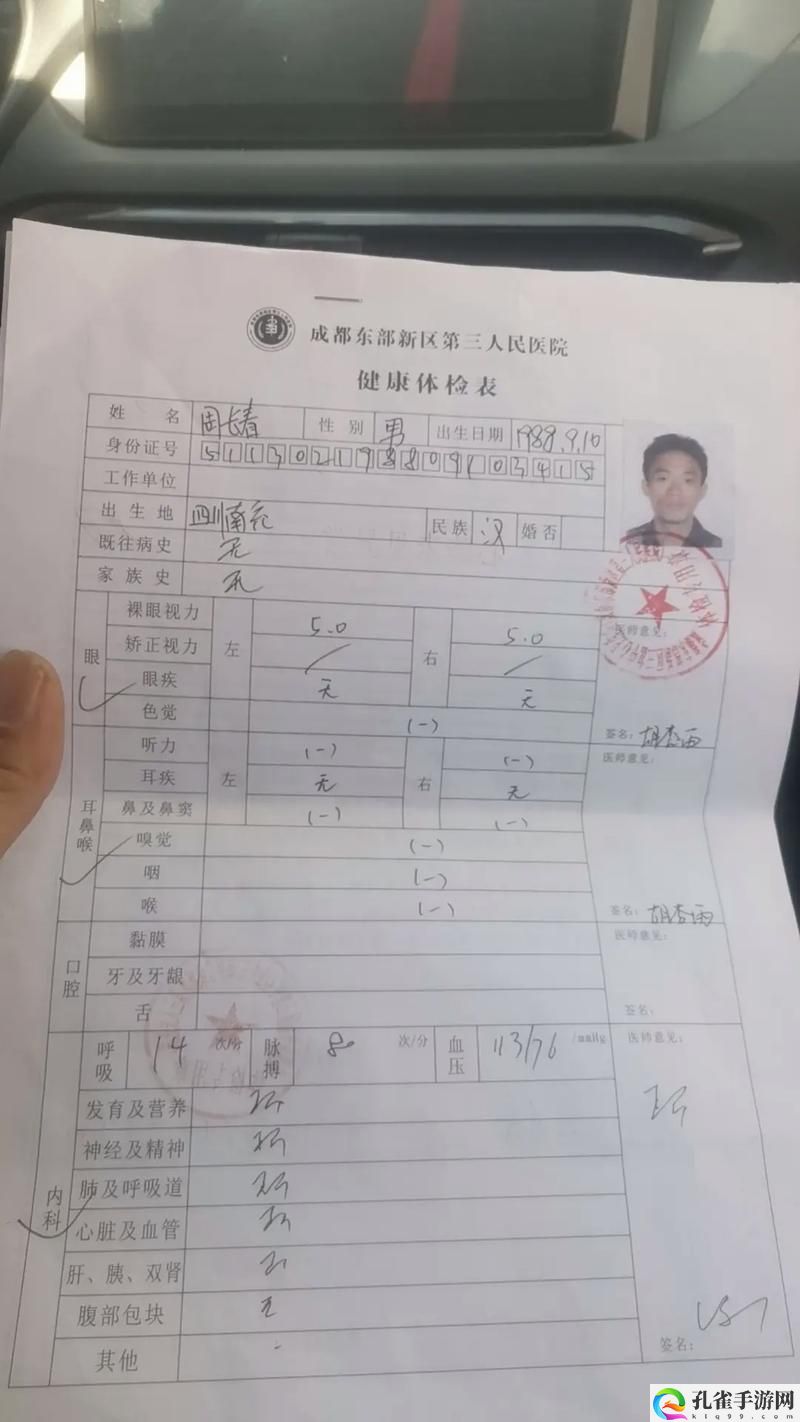 成都东部新区第三人民医院
健康体检表
姓名 周长春 性别 男 出生日期 1988.9.10
身份证号 511302198809103415
工作单位
出生地 四川南充 民族 汉 婚否
既往病史 无
家族史 无
眼 裸眼视力 左 5.0 右 5.0 医师意见:
矫正视力 / /
眼疾 无 无
色觉 (-) 签名: 胡杏雨
耳鼻喉 听力 左 (-) 右 (-) 医师意见:
耳疾 无 无
鼻及鼻窦 (-) (-)
嗅觉 (-)
咽 (-)
喉 (-) 签名: 胡杏雨
口腔 黏膜 医师意见:
牙及牙龈
舌 签名:
内科 呼吸 14 次/分 脉搏 80 次/分 血压 113/76 /mmHg 医师意见:
发育及营养
神经及精神
肺及呼吸道
心脏及血管
肝、胰、双肾
腹部包块 无
其他 签名:
孔雀手游网
www.kfq99.com